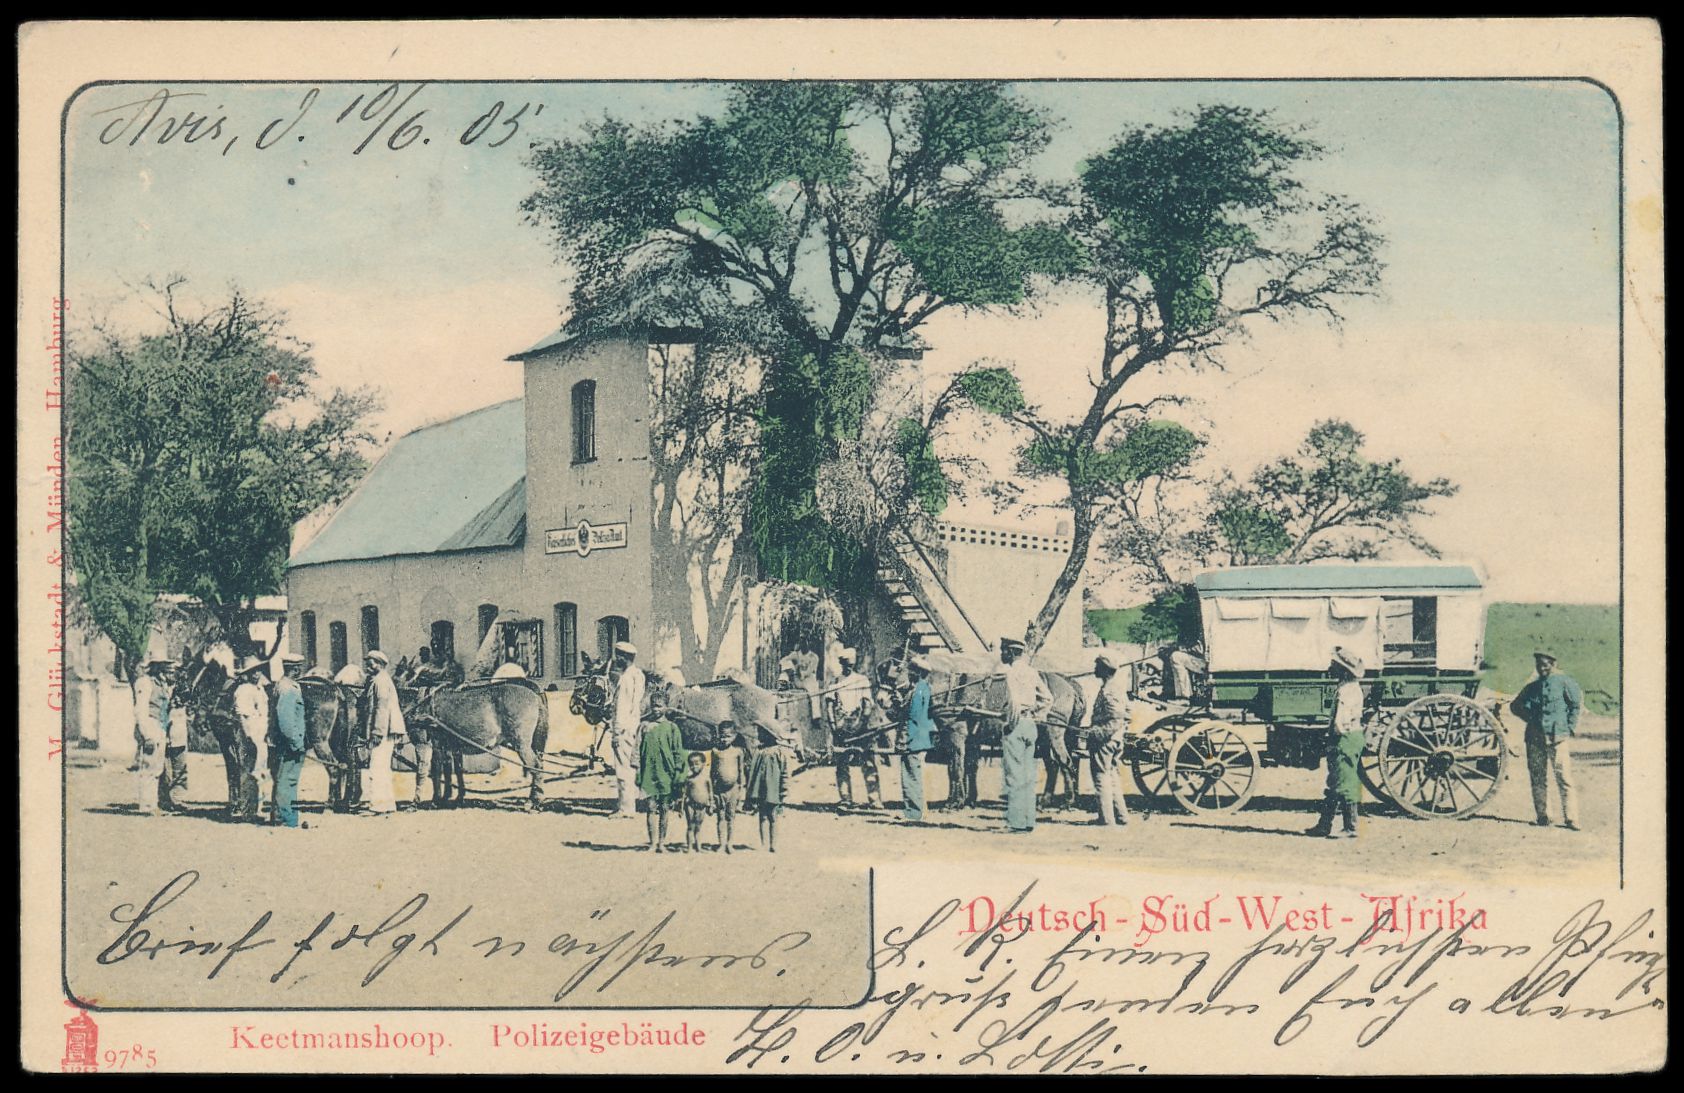 Avis, d. 10/6. 05.
M. Glückstadt & Münden, Hamburg
Kaiserliches Polizei Amt.
Deutsch-Süd-West-Afrika
Brief folgt nächstens.
L. K. Einen herzlichsten Pfingst-
gruß senden Euch allen
H. O. u.
Keetmanshoop. Polizeigebäude
9785